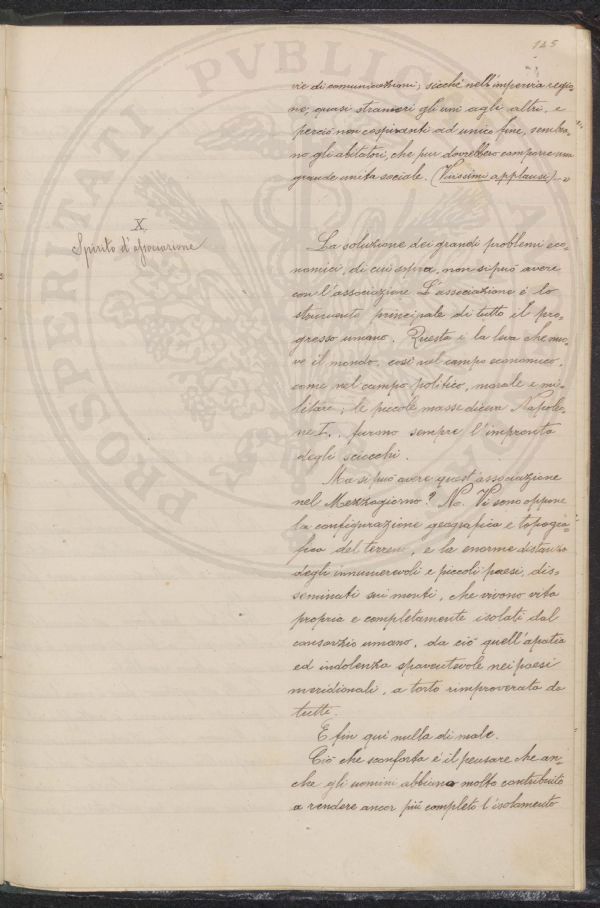 125
vie di comunicazioni; sicchè nell'impervia regio=
ne, quasi stranieri gli uni agli altri, e
perciò non cospiranti ad unico fine, sembra=
no gli abitatori, che pur dovrebbero comporre una
grande unità sociale. (Vivissimi applausi)
X
Spirito d'associazione
La soluzione dei grandi problemi eco=
nomici, di cui sopra, non si può avere
con l'associazione L'associazione è lo
strumento principale di tutto il pro=
gresso umano. Questa è la leva che muo=
ve il mondo, così nel campo economico,
come nel campo politico, morale e mi=
litare; le piccole masse diceva Napoleo=
ne I., furono sempre l'impronta
degli sciocchi.
Ma si può avere quest'associazione
nel Mezzogiorno? No. Vi sono oppone
la configurazione geografica e topogra=
fica del terreno, e la enorme distanza
degli innumerevoli e piccoli paesi, dis=
seminati sui monti, che vivono vita
propria e completamente isolati dal
consorzio umano, da ciò quell'apatia
ed indolenza spaventevole nei paesi
meridionali, a torto rimproverata da
tutti.
E fin qui nulla di male.
Ciò che sconforta è il pensare che an=
che gli uomini abbiano molto contribuito
a rendere ancor più completo l'isolamento
PROSPERITATI PVBLICAE